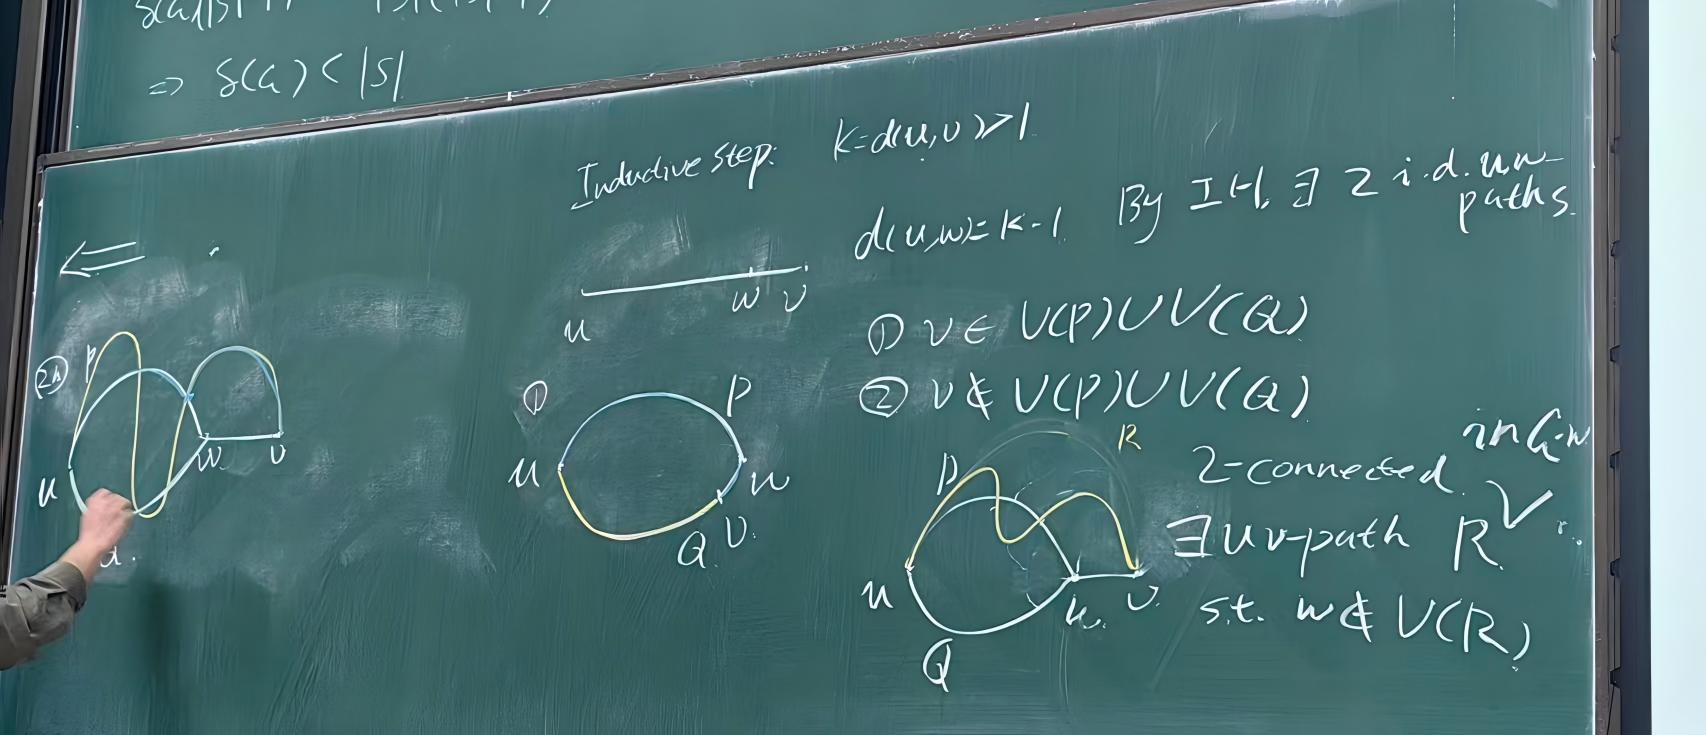 ⇒ δ(G) < |S|
Inductive step: k=d(u,v)>1
d(u,w)=k-1. By IH, ∃ 2 i.d. u,w-
paths.
⇐
u w v
① v ∈ V(P)∪V(Q)
② v ∉ V(P)∪V(Q)
P
u w v
① P
u w
Q v.
P R
u w. v.
Q
2-connected. in G-w
∃ uv-path R ✓
s.t. w ∉ V(R)